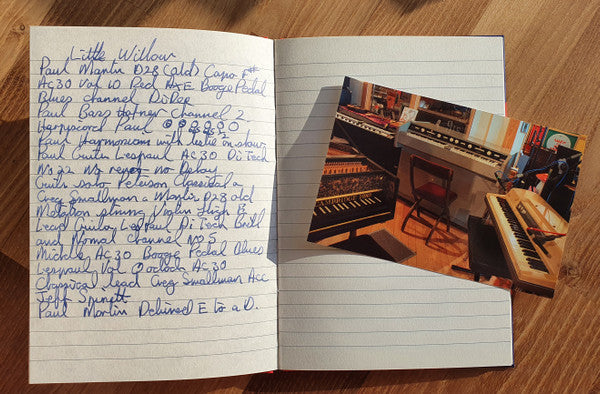 Little Willow
Paul Martin D28 (old) Capo F#
AC30 Vol 10 Red AXE Boogie Pedal
Blues channel
Paul Bass Hofner Channel 2
Harpsicord Paul
Paul Harmonium with leslie on slow
Paul Guitar Lespaul AC30 Di Tech
No 92 no repeat no Delay
Guitar solo Classical
Greg Smallman a Martin D28 old
String Violin High B
Lead Guitar LesPaul Di Tech Brill
and Normal Channel No 5
Michelle AC30 Boogie Pedal Blues
Lespaul Vol AC30
Classical lead Greg Smallman Acc
Jeff
Paul Martin Detuned E to a D.